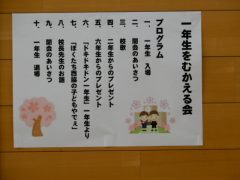 一年生をむかえる会
プログラム
一、一年生 入場
二、開会のあいさつ
三、校歌
四、二年生からのプレゼント
五、六年生からのプレゼント
六、「ドキドキドン一年生」一年生より
七、「ぼくたち西脇の子どもやでぇ」
八、校長先生のお話
九、閉会のあいさつ
十、一年生 退場